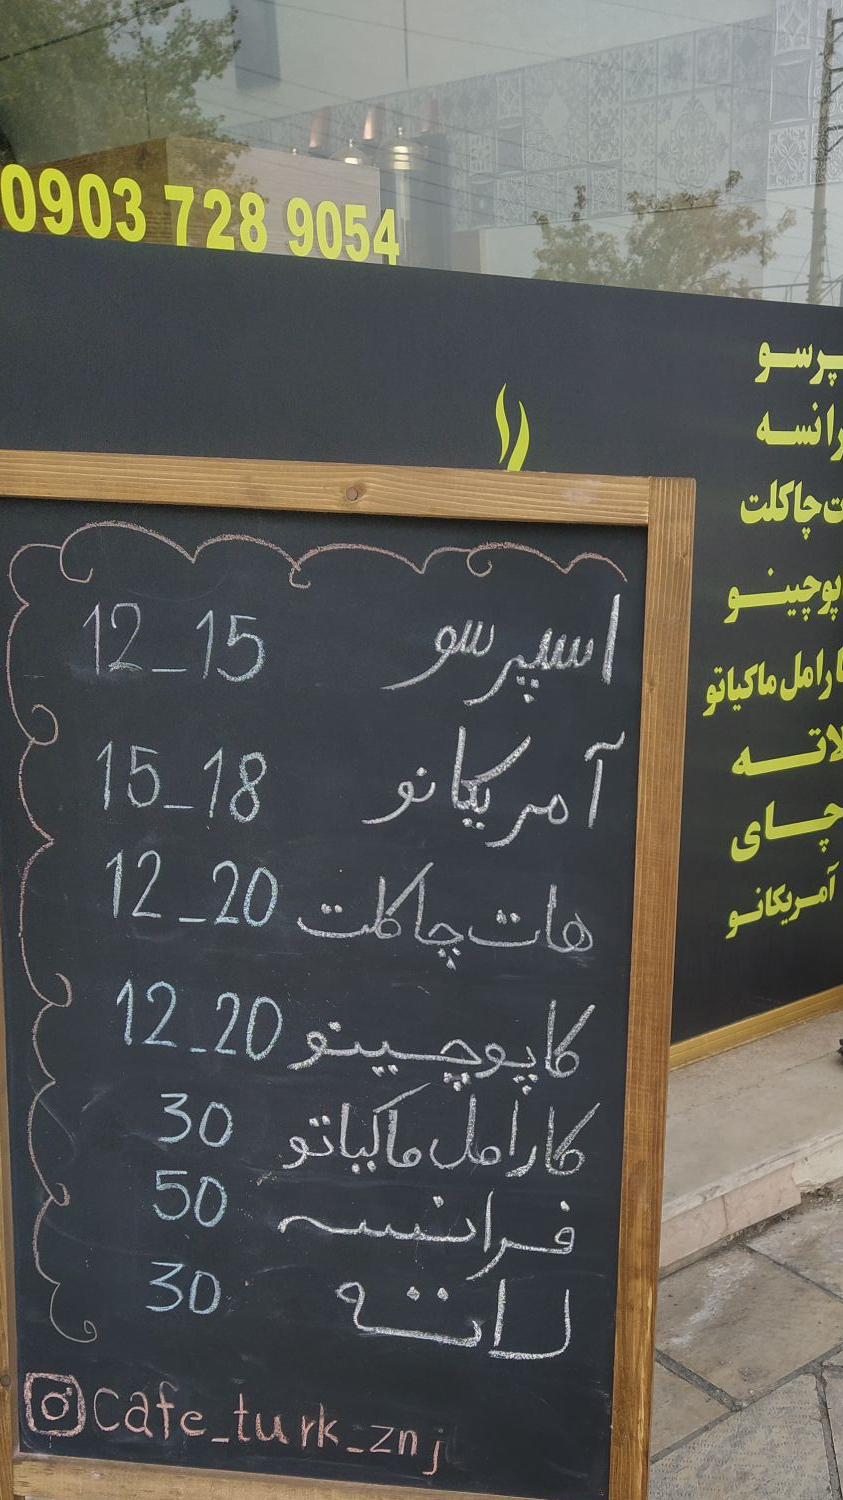 0903 728 9054
اسپرسو 12_15
آمریکانو 15_18
هات چاکلت 12_20
کاپوچینو 12_20
کارامل ماکیاتو 30
فرانسه 50
لاته 30
cafe_turk_znj
پرسو
رانسه
ت چاکلت
پوچینو
ارامل ماکیاتو
لاته
چای
آمریکانو